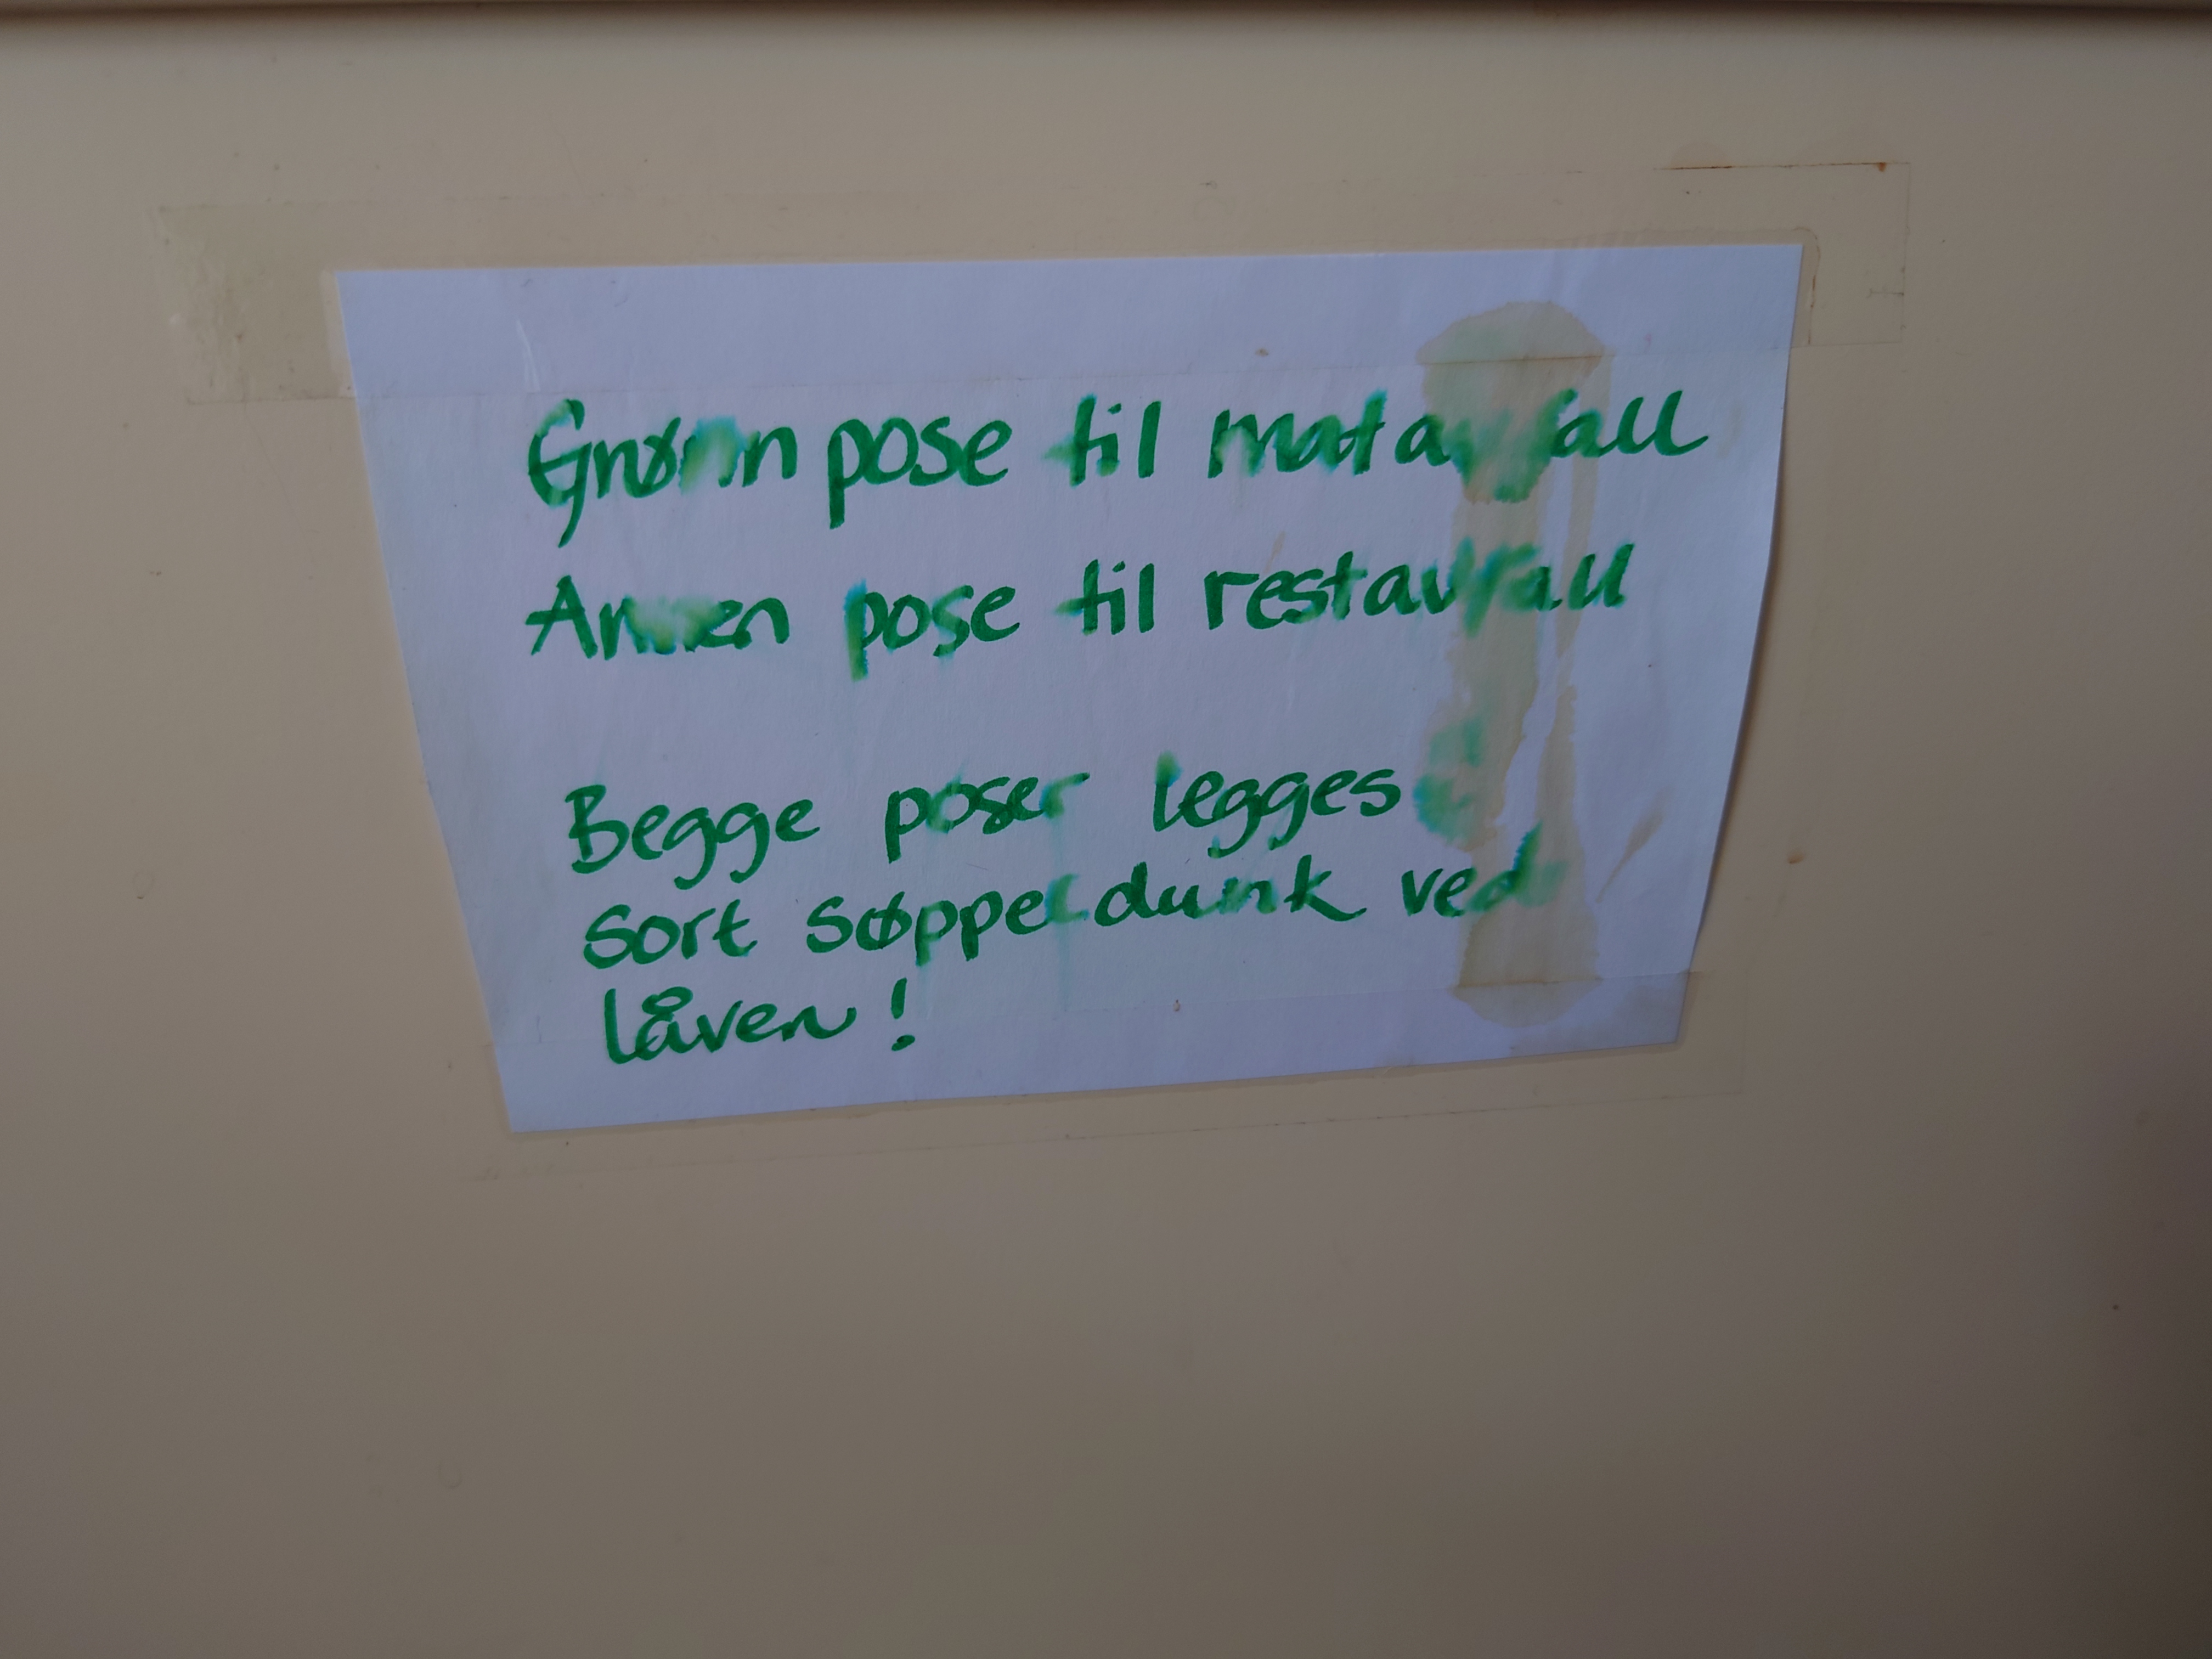 Grønn pose til matavfall
Annen pose til restavfall
Begge poser legges
sort søppeldunk ved
låven!